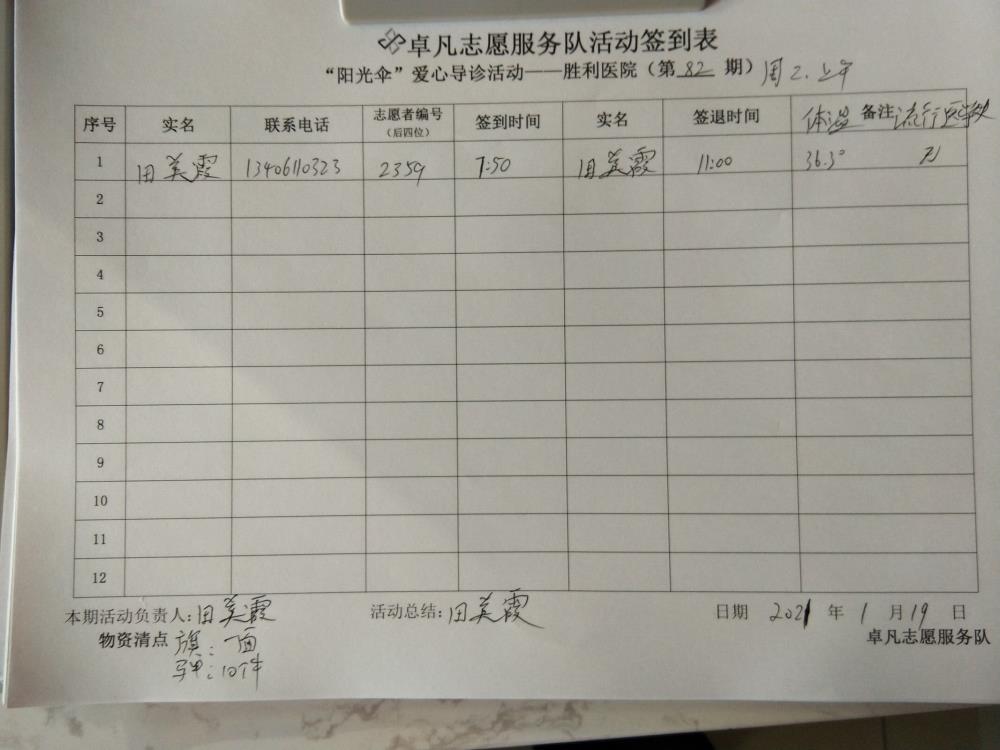 卓凡志愿服务队活动签到表
“阳光伞”爱心导诊活动——胜利医院（第 82 期）周2.上午
序号 实名 联系电话 志愿者编号（后四位） 签到时间 实名 签退时间 体温 备注 流行医学史
1 田美霞 13406110323 2359 7:50 田美霞 11:00 36.3° 无
2
3
4
5
6
7
8
9
10
11
12
本期活动负责人:田美霞 活动总结:田美霞 日期 2021 年 1 月 19 日
物资清点 旗:一面 卓凡志愿服务队
马甲:10件